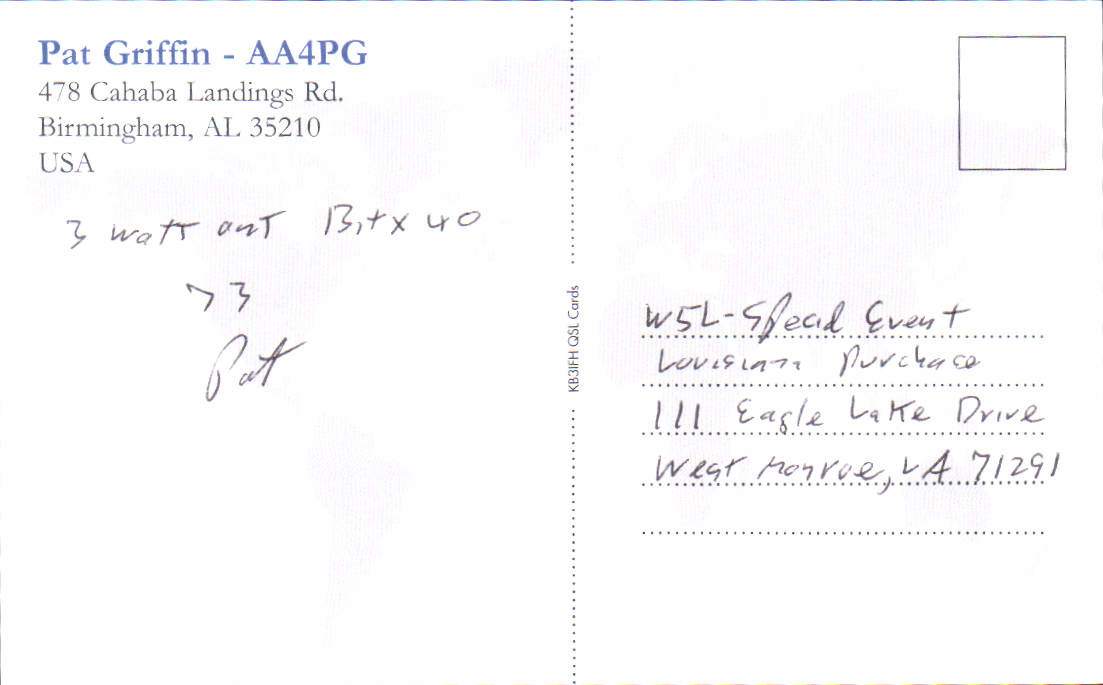 Pat Griffin - AA4PG
478 Cahaba Landings Rd.
Birmingham, AL 35210
USA
3 watt out Bitx 40
73
Pat
KB3IFH QSL Cards
W5L-Special Event
Louisiana Purchase
111 Eagle Lake Drive
West Monroe, LA 71291